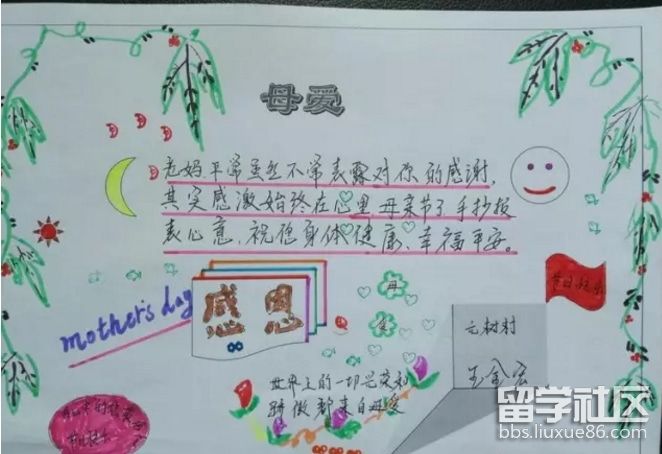 母爱
老妈平常虽然不常表露对你的感谢,
其实感激始终在心里,母亲节了手抄报
表心意,祝您身体健康、幸福平安。
节日快乐
mother's day
感恩
母
世界上的一切光荣和
骄傲都来自母爱
元材村
王金宏
节日快乐
留学社区
bbs.liuxue86.com